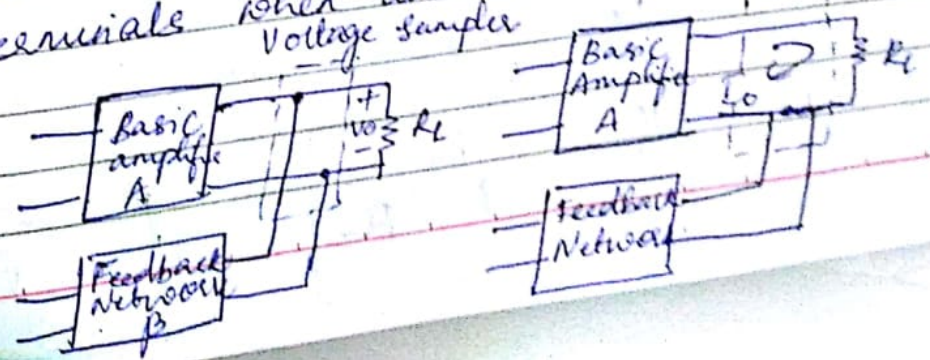 terminals when
Voltage sampler
Basic
amplifie
A
+
Vo
-
RL
Feedback
Network
β
Basic
Amplifie
A
RL
Feedback
Network